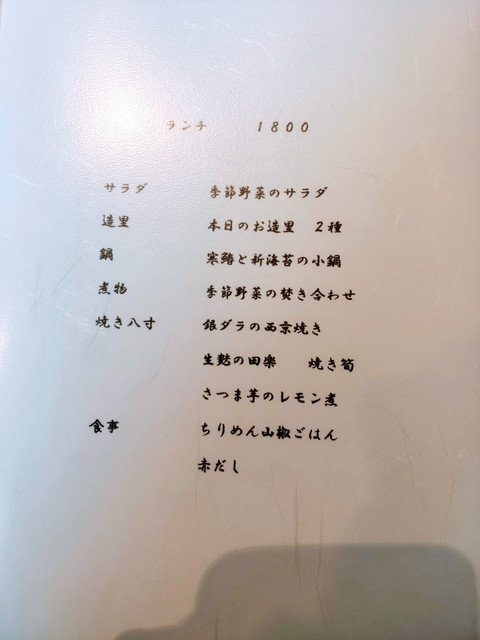 ランチ 1800
サラダ 季節野菜のサラダ
造里 本日のお造里 2種
鍋 寒鰆と新海苔の小鍋
煮物 季節野菜の焚き合わせ
焼き八寸 銀ダラの西京焼き
生麩の田楽 焼き筍
さつま芋のレモン煮
食事 ちりめん山椒ごはん
赤だし